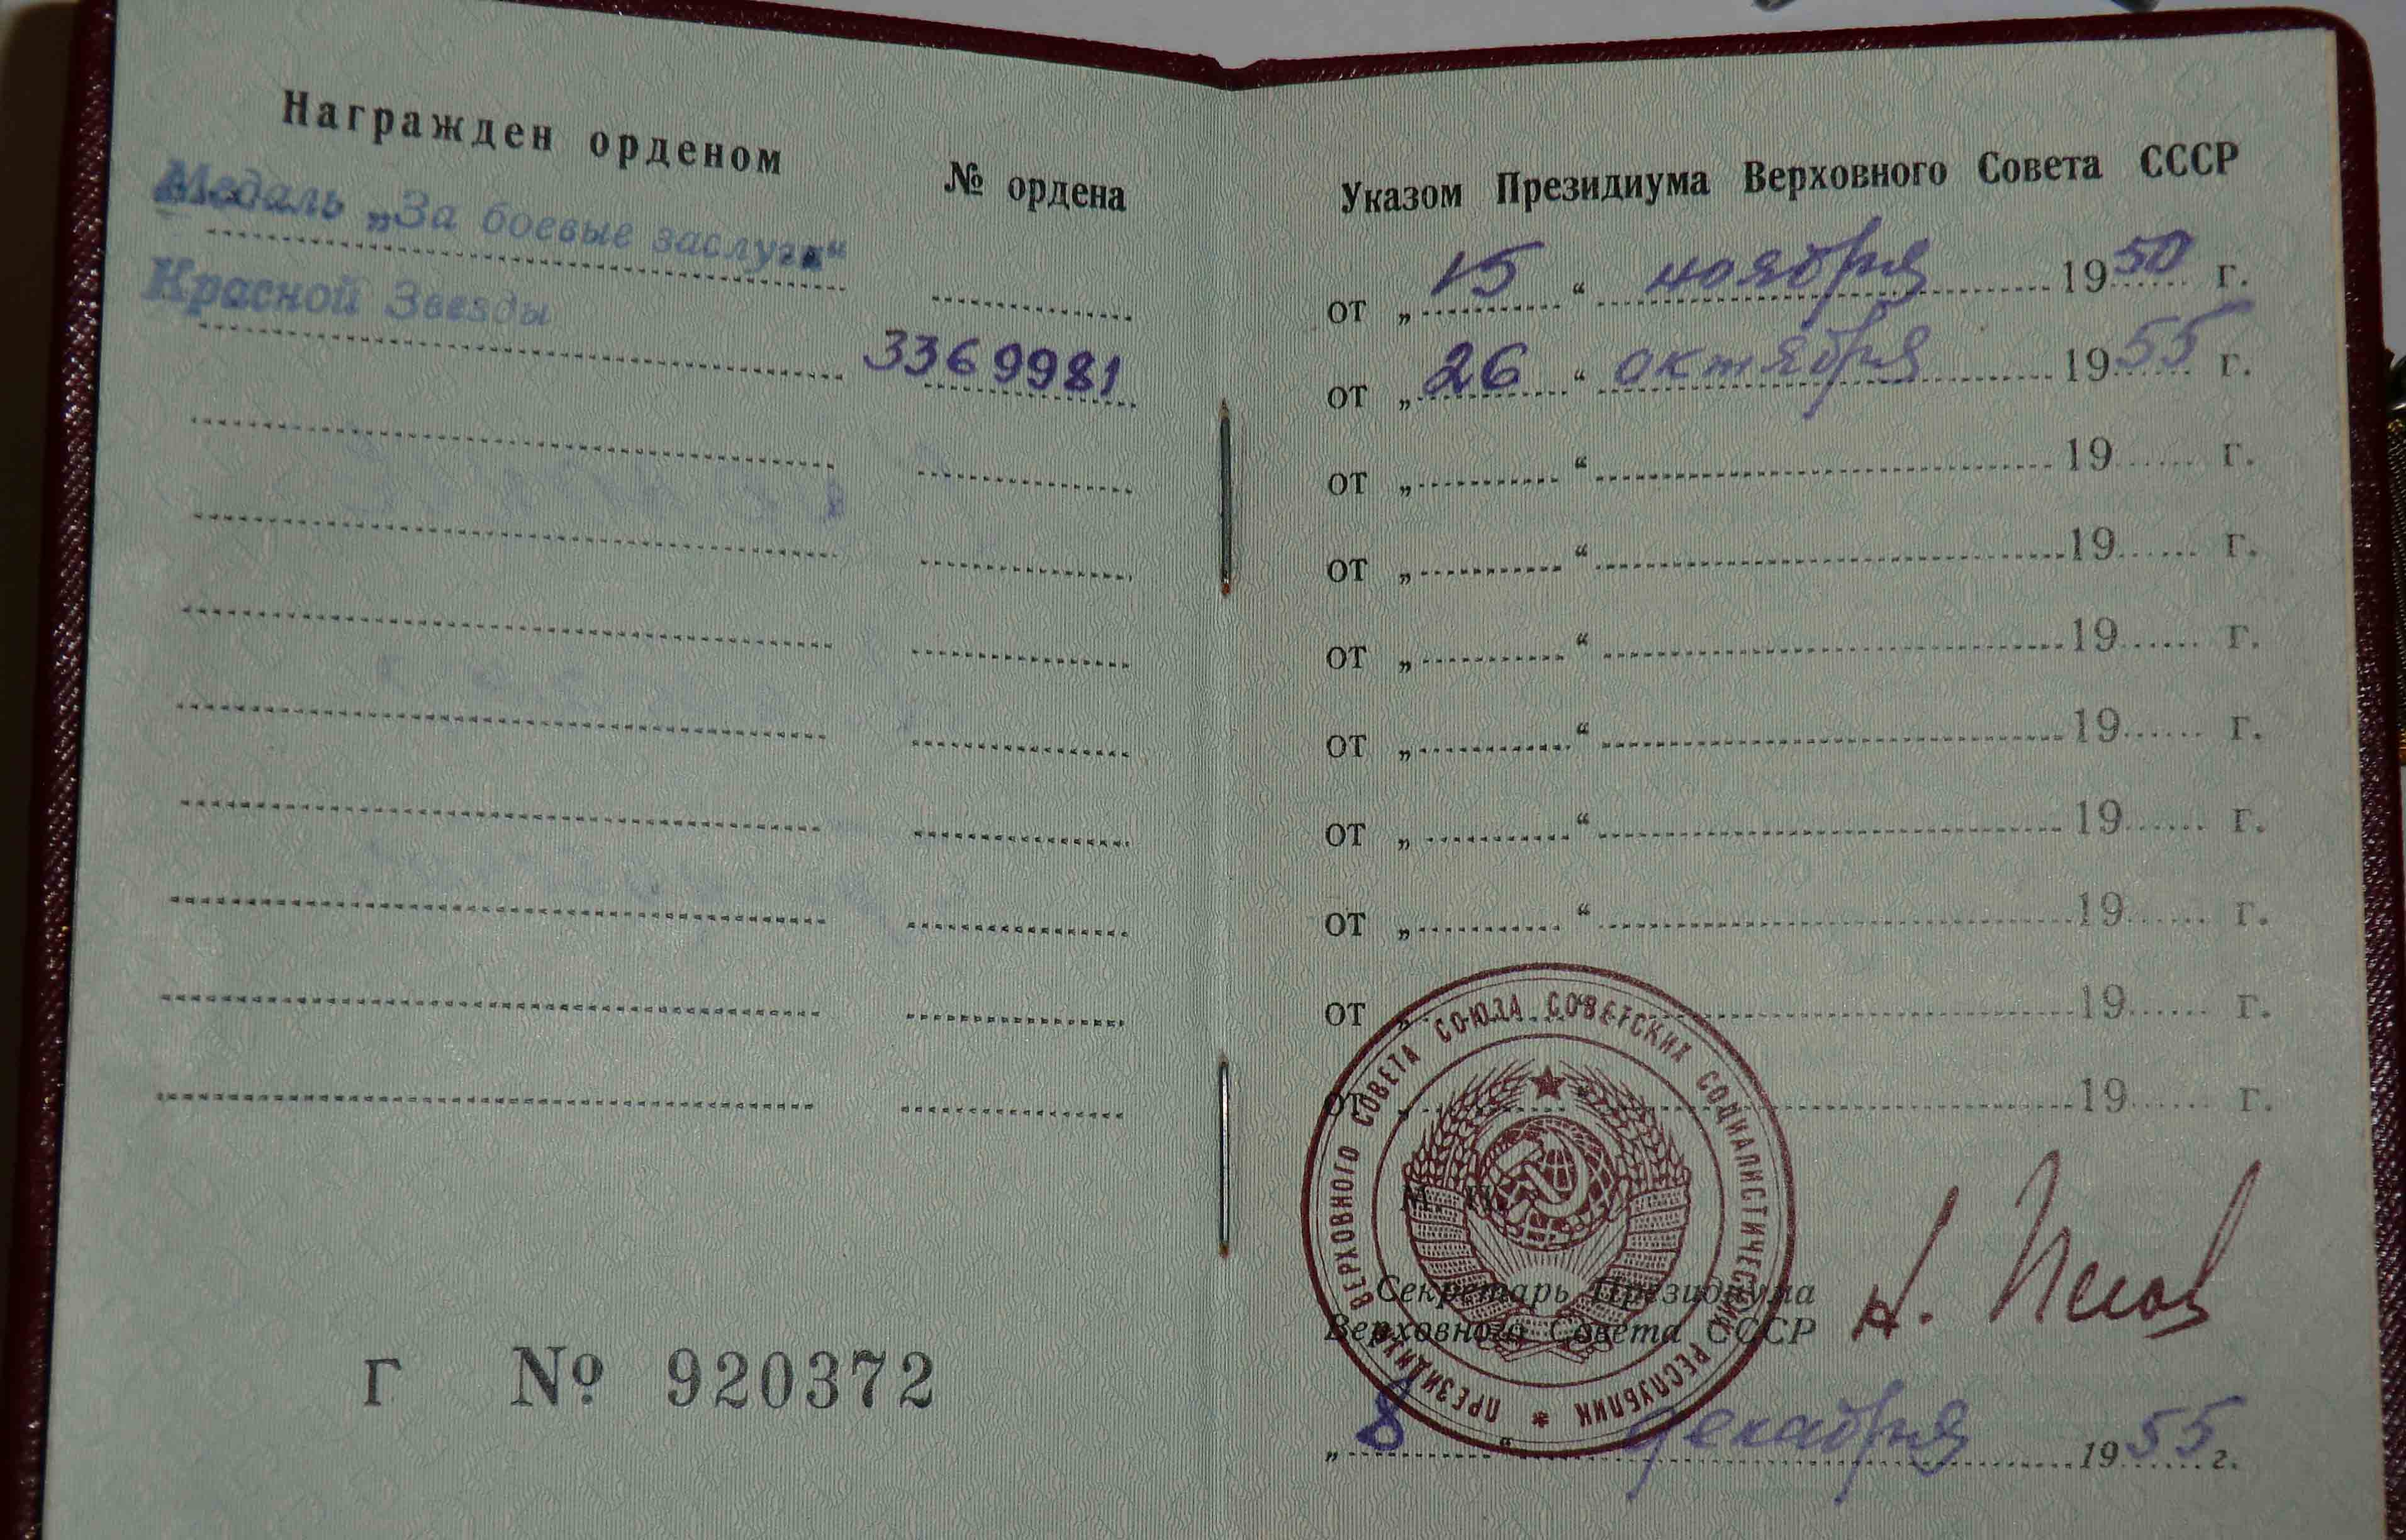 Награжден орденом
№ ордена
Медаль „За боевые заслуги“
Красной Звезды
3369981
Г № 920372
Указом Президиума Верховного Совета СССР
от „15“ ноября 1950 г.
от „26“ октября 1955 г.
от „ “ 19 г.
от „ “ 19 г.
от „ “ 19 г.
от „ “ 19 г.
от „ “ 19 г.
от „ “ 19 г.
от „ “ 19 г.
от „ “ 19 г.
М. П.
ПРЕЗИДИУМ ВЕРХОВНОГО СОВЕТА СОЮЗА СОВЕТСКИХ СОЦИАЛИСТИЧЕСКИХ РЕСПУБЛИК *
Секретарь Президиума
Верховного Совета СССР
Н. Пегов
„8“ декабря 1955 г.